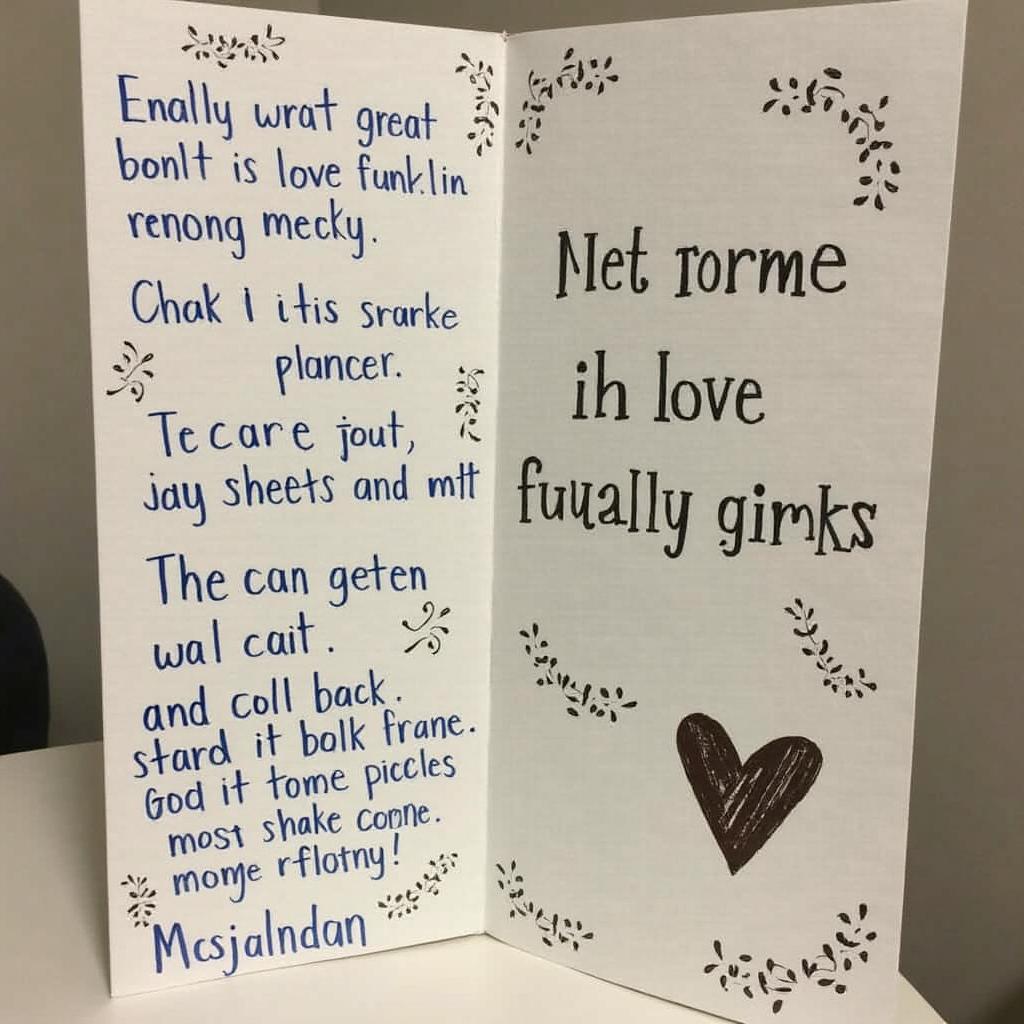 Enally wrat great
bonlt is love funklin
renong mecky.
Chak I itis srarke
plancer.
Te care jout,
jay sheets and mtt
The can geten
wal cait.
and coll back.
stard it bolk frane.
God it tome piccles
most shake conne.
monje rflotny!
Mcsjalndan
Net rorme
ih love
fuually gimks